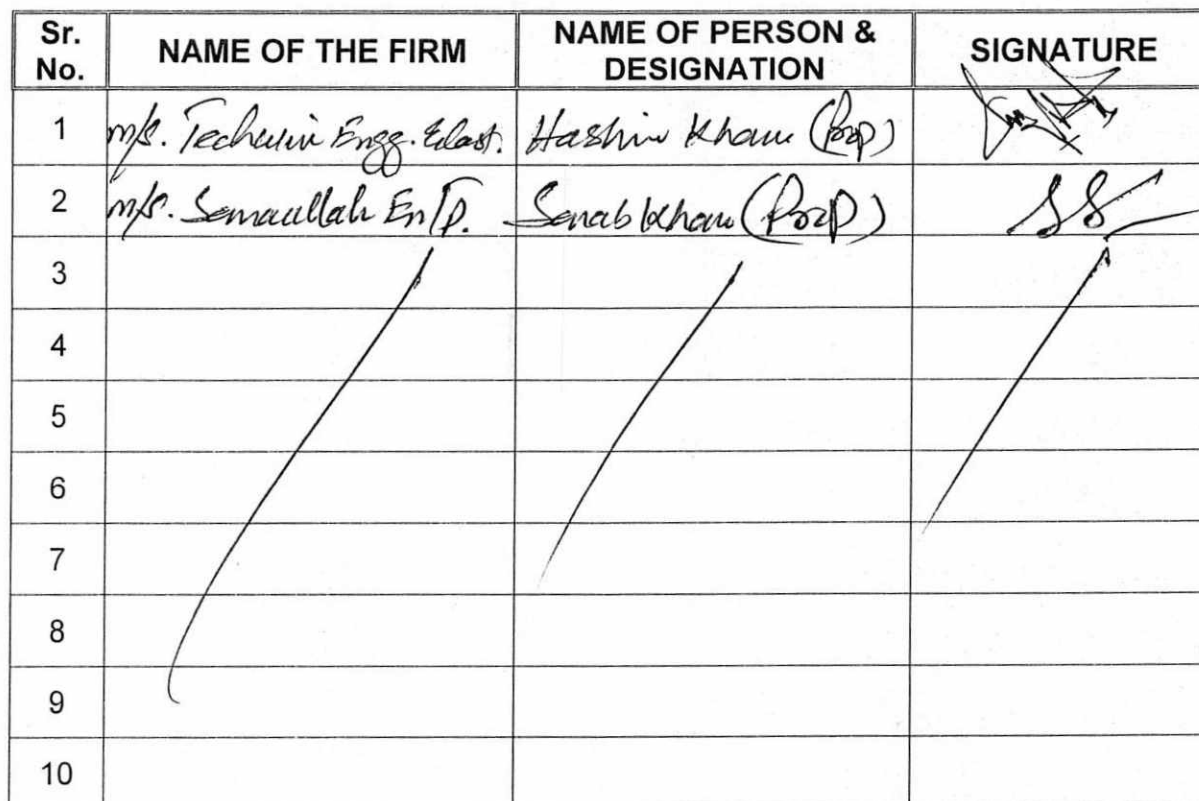 Sr. No. NAME OF THE FIRM NAME OF PERSON & DESIGNATION SIGNATURE
1 m/s. Engg. Hashim Khan (Prop)
2 m/s. Samaullah Ent. Khan (Prop)
3
4
5
6
7
8
9
10